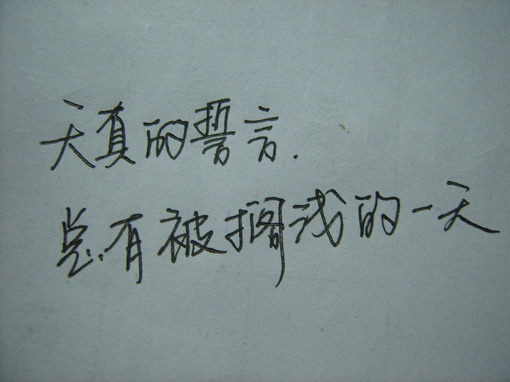 天真的誓言.
总有被搁浅的一天